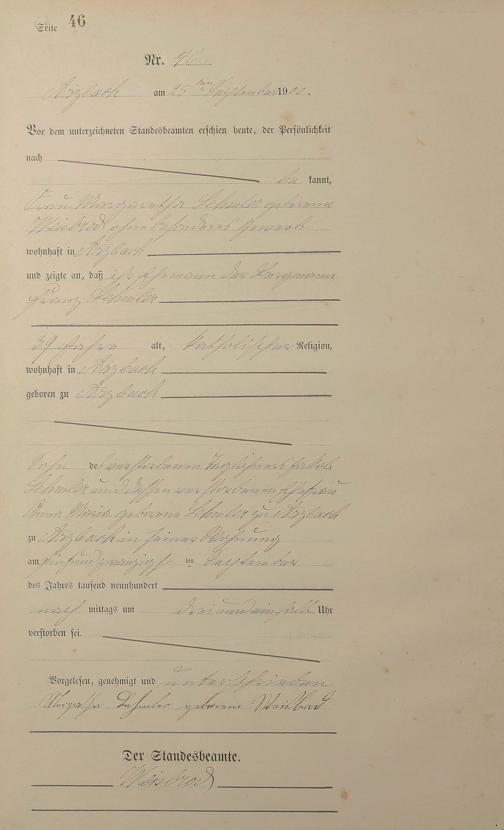 Seite 46
Nr. 46
Arzbach am 25 ten September 1900.
Vor dem unterzeichneten Standesbeamten erschien heute, der Persönlichkeit
nach
be kannt,
Frau Margaretha geborene
Weisbrod ohne besonderes Gewerb
wohnhaft in Arzbach
und zeigte an, daß ihr Ehemann der Bergmann
Franz
39 Jahre alt, katholischer Religion,
wohnhaft in Arzbach
geboren zu Arzbach
Sohn des verstorbenen Taglöhners Jakob
und dessen verstorbenen Ehefrau
Anna Maria geborene zu Arzbach
zu Arzbach in seiner Wohnung
am fünfundzwanzigsten September
des Jahres tausend neunhundert
nach mittags um drei und ein halb Uhr
verstorben sei.
Vorgelesen, genehmigt und unterschrieben
geborene
Der Standesbeamte.
Weisbrod